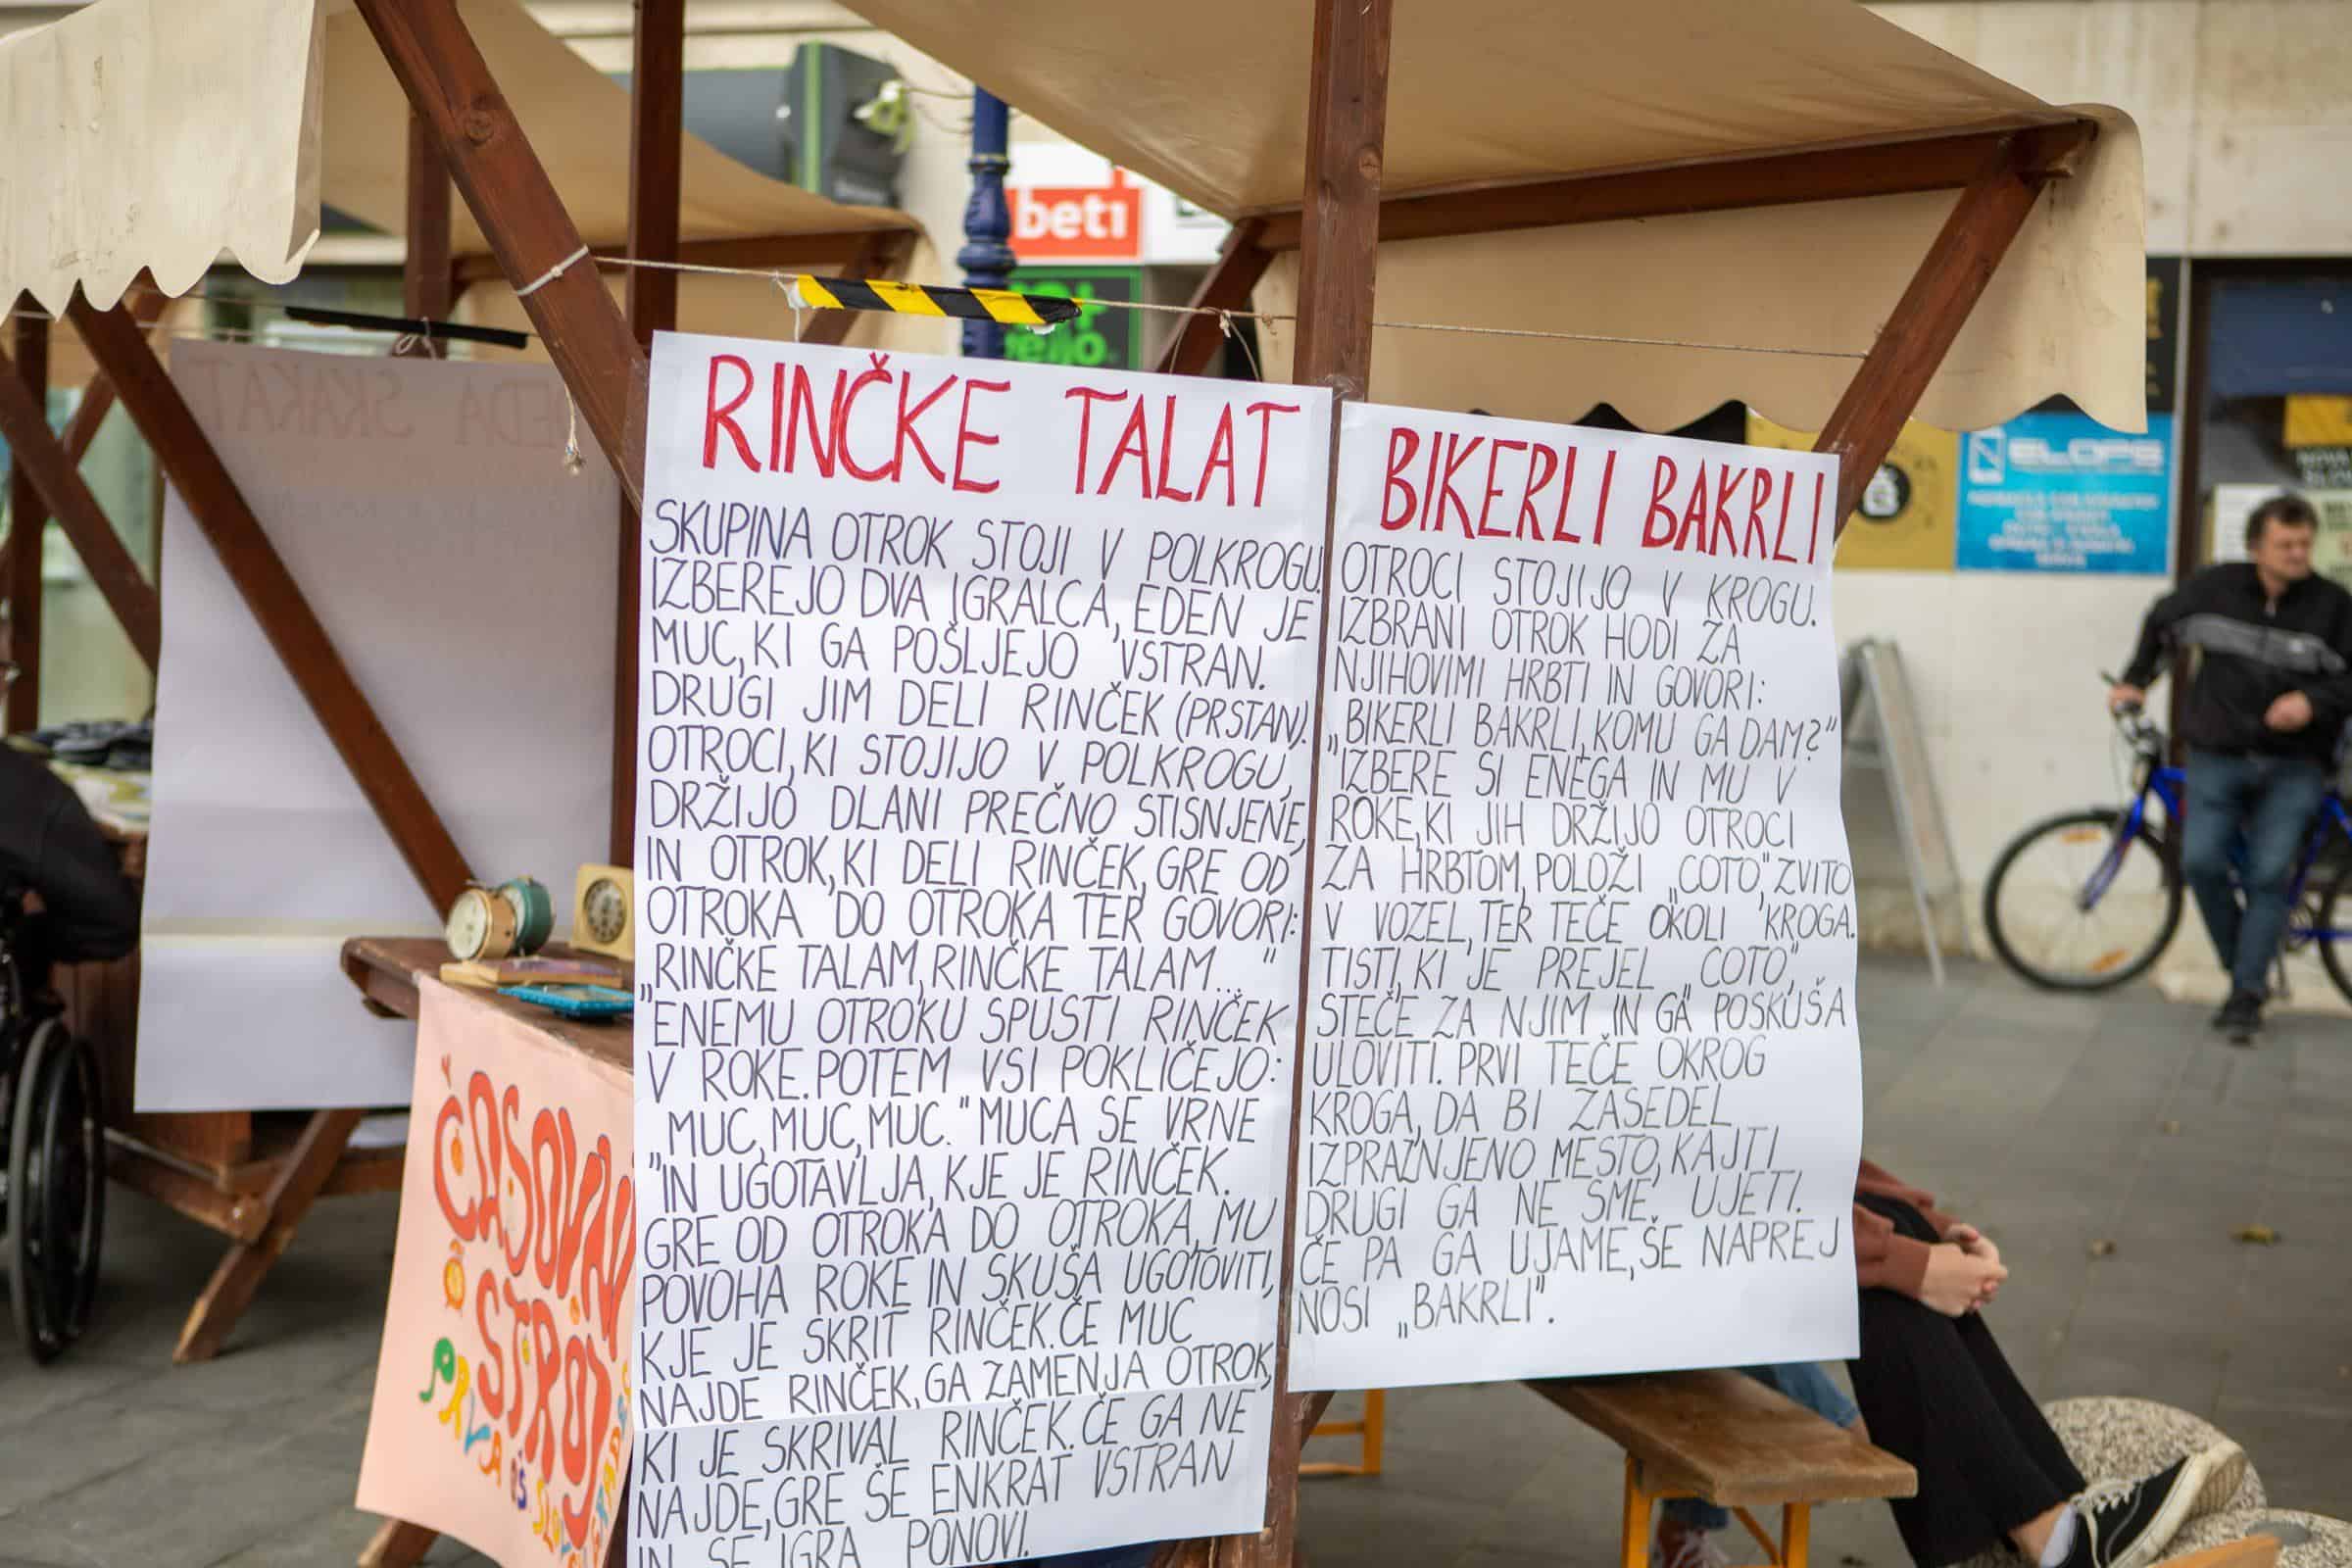 beti
RINČKE TALAT
SKUPINA OTROK STOJI V POLKROGU.
IZBEREJO DVA IGRALCA, EDEN JE
MUC, KI GA POŠLJEJO VSTRAN.
DRUGI JIM DELI RINČEK (PRSTAN).
OTROCI, KI STOJIJO V POLKROGU,
DRŽIJO DLANI PREČNO STISNJENE,
IN OTROK, KI DELI RINČEK, GRE OD
OTROKA DO OTROKA TER GOVORI:
„RINČKE TALAM, RINČKE TALAM..."
ENEMU OTROKU SPUSTI RINČEK
V ROKE. POTEM VSI POKLIČEJO:
„MUC, MUC, MUC." MUCA SE VRNE
IN UGOTAVLJA, KJE JE RINČEK.
GRE OD OTROKA DO OTROKA, MU
POVOHA ROKE IN SKUŠA UGOTOVITI,
KJE JE SKRIT RINČEK. ČE MUC
NAJDE RINČEK, GA ZAMENJA OTROK,
KI JE SKRIVAL RINČEK. ČE GA NE
NAJDE, GRE ŠE ENKRAT VSTRAN
IN SE IGRA PONOVI.
BIKERLI BAKRLI
OTROCI STOJIJO V KROGU.
IZBRANI OTROK HODI ZA
NJIHOVIMI HRBTI IN GOVORI:
„BIKERLI BAKRLI, KOMU GA DAM?"
IZBERE SI ENEGA IN MU V
ROKE, KI JIH DRŽIJO OTROCI
ZA HRBTOM, POLOŽI „COTO", ZVITO
V VOZEL, TER TEČE OKOLI KROGA.
TISTI, KI JE PREJEL „COTO",
STEČE ZA NJIM IN GA POSKUŠA
ULOVITI. PRVI TEČE OKROG
KROGA, DA BI ZASEDEL
IZPRAZNJENO MESTO, KAJTI
DRUGI GA NE SME UJETI.
ČE PA GA UJAME, ŠE NAPREJ
NOSI „BAKRLI".
ČASOVNI
STROJ
PRVA OŠ
SKAKAT
ELOPE